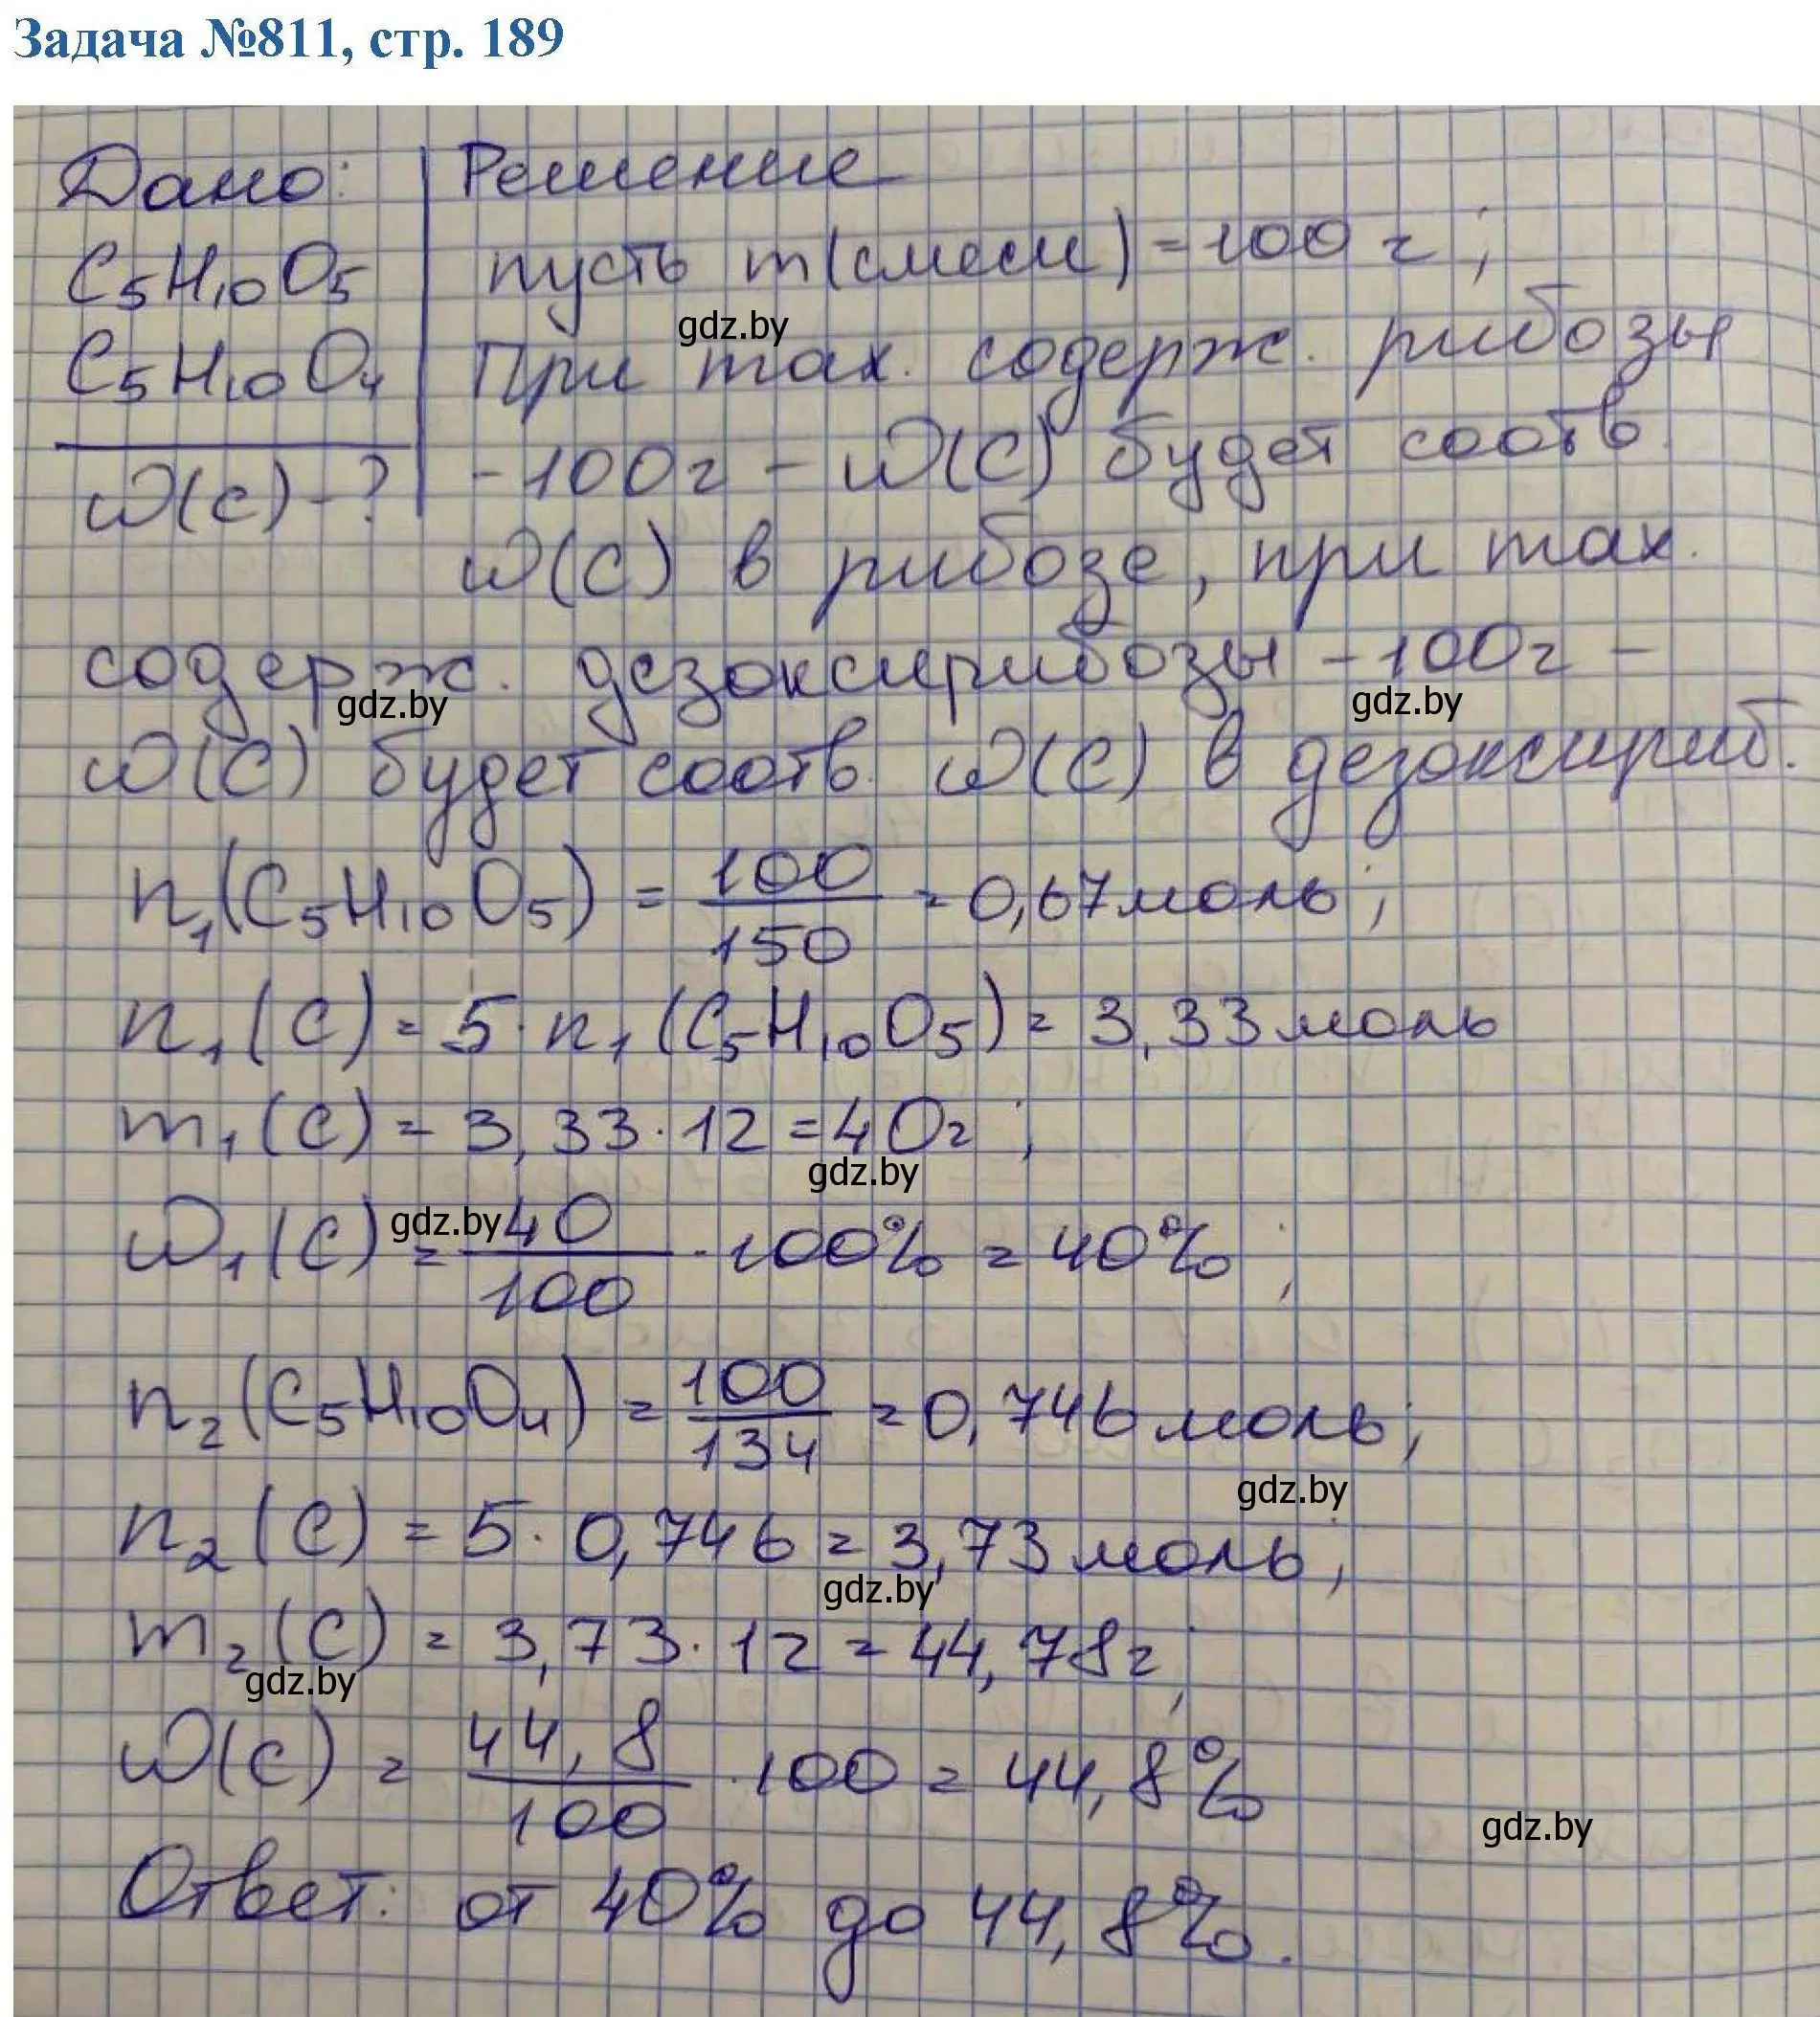 Задача №811, стр. 189
Дано: Решение
C₅H₁₀O₅ пусть m(смеси) = 100 г;
gdz.by
C₅H₁₀O₄ При max. содерж. рибозы
ω(C) - ? - 100г - ω(C) будет соотв.
ω(C) в рибозе, при max.
содерж. дезоксирибозы - 100г -
gdz.by gdz.by
ω(C) будет соотв. ω(C) в дезоксириб.
n₁(C₅H₁₀O₅) = 100/150 = 0,67 моль;
n₁(C) = 5 · n₁(C₅H₁₀O₅) = 3,33 моль
m₁(C) = 3,33 · 12 = 40г;
gdz.by
gdz.by
ω₁(C) = 40/100 · 100% = 40%;
n₂(C₅H₁₀O₄) = 100/134 = 0,746 моль;
gdz.by
n₂(C) = 5 · 0,746 = 3,73 моль;
gdz.by
m₂(C) = 3,73 · 12 = 44,78г;
gdz.by
ω(C) = 44,8/100 · 100 = 44,8%
gdz.by
Ответ: от 40% до 44,8%.